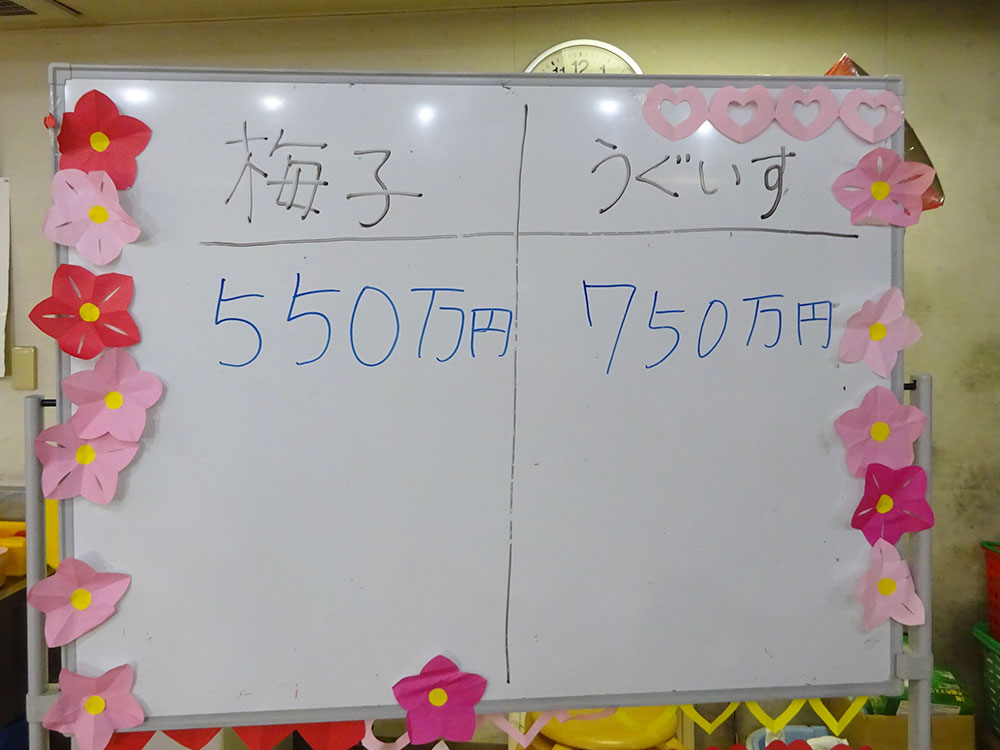 11 12 1
梅子 うぐいす
550万円 750万円